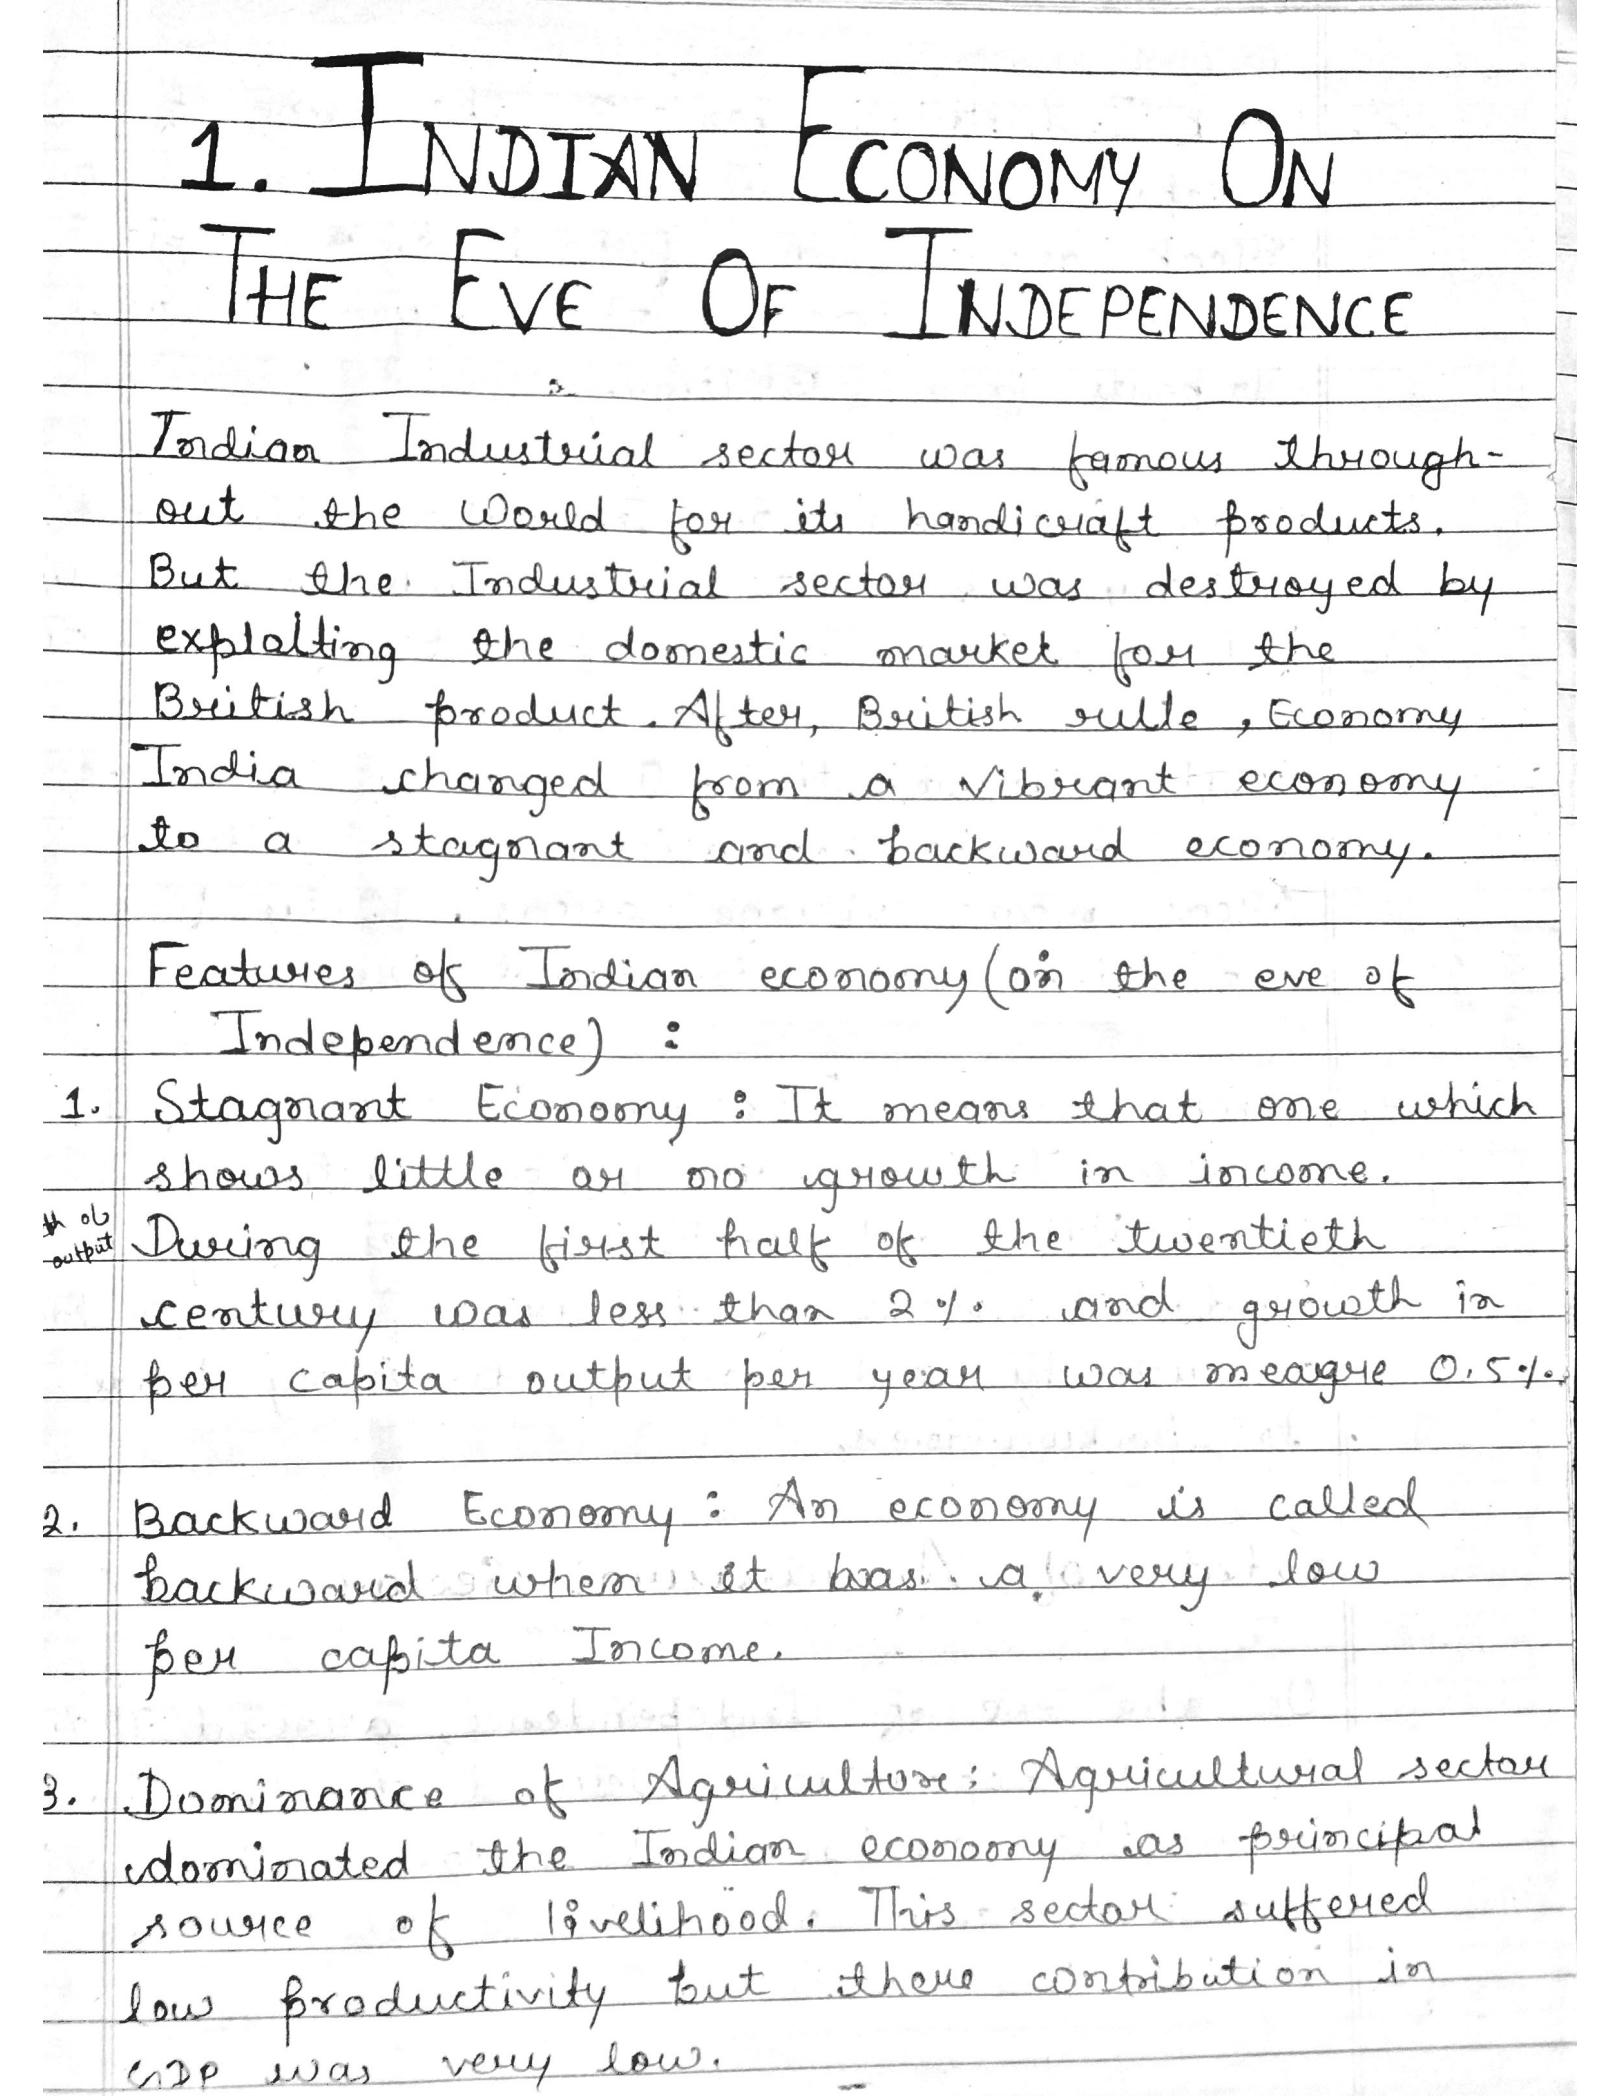 1. INDIAN ECONOMY ON
THE EVE OF INDEPENDENCE
Indian Industrial sector was famous through-
out the World for its handicraft products.
But the Industrial sector was destroyed by
exploiting the domestic market for the
British product. After, British rulle, Economy
India changed from a vibrant economy
to a stagnant and backward economy.
Features of Indian economy (on the eve of
Independence) :
1. Stagnant Economy : It means that one which
shows little or no growth in income.
th of
output
During the first half of the twentieth
century was less than 2%. and growth in
per capita output per year was meagre 0.5%.
2. Backward Economy : An economy is called
backward when it has a very low
per capita Income.
3. Dominance of Agriculture : Agricultural sector
dominated the Indian economy as principal
source of livelihood. This sector suffered
low productivity but there contribution in
GDP was very low.